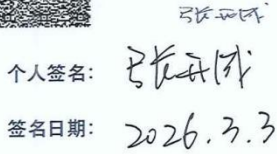 张开成
个人签名：张开成
签名日期：2026.3.3